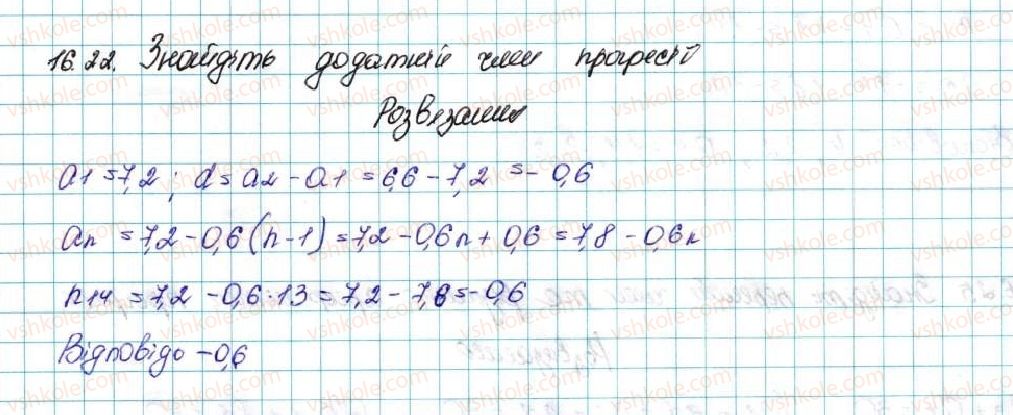 16.22. Знайдіть додатній член прогресії
Розв'язання
a1 = 7,2; d = a2 - a1 = 6,6 - 7,2 = -0,6
an = 7,2 - 0,6(n-1) = 7,2 - 0,6n + 0,6 = 7,8 - 0,6n
n14 = 7,2 - 0,6·13 = 7,2 - 7,8 = -0,6
Відповідь -0,6